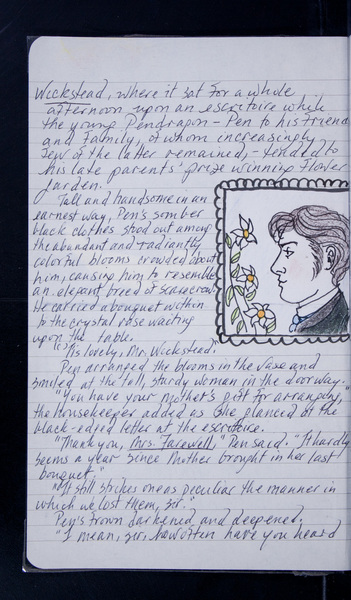 Wickstead, where it sat for a whole
afternoon upon an escritoire while
the young Pendragon – Pen to his friends
and family, of whom increasingly
few of the latter remained, – tended to
his late parents' prize winning flower
garden.
Tall and handsome in an
earnest way, Pen's somber
black clothes stood out among
the abundant and radiantly
colorful blooms crowded about
him, causing him to resemble
an elegant breed of scarecrow.
He carried a bouquet within
to the crystal vase waiting
upon the table.
"It's lovely, Mr. Wickstead."
Pen arranged the blooms in the vase and
smiled at the tall, sturdy woman in the doorway.
"You have your mother's gift for arranging,"
the housekeeper added as she glanced at the
black-edged letter at the escritoire.
"Thank you, Mrs. Farewell," Pen said. "It hardly
seems a year since Mother brought in her last
bouquet."
"It still strikes one as peculiar the manner in
which we lost them, sir."
Pen's frown darkened and deepened.
"I mean, sir, how often have you heard